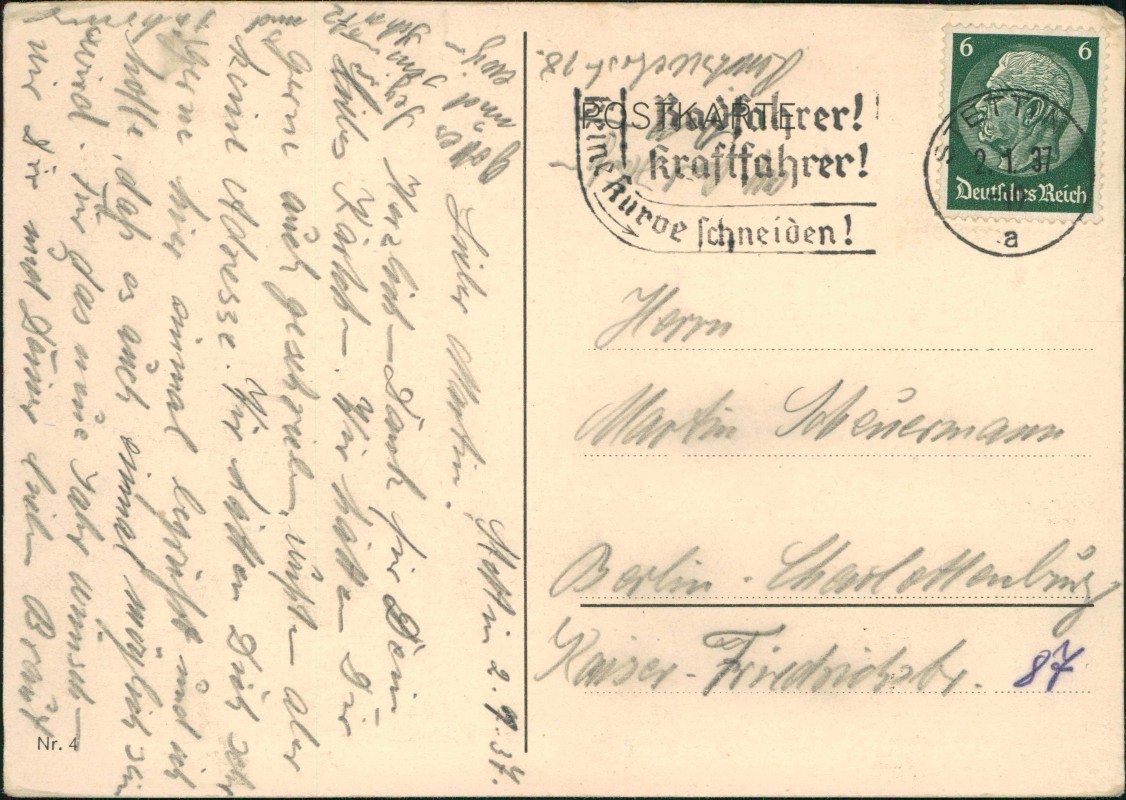 6 6
Deutsches Reich
STETTIN
2.1.37
a
POSTKARTE
Radfahrer!
Kraftfahrer!
Keine Kurve schneiden!
Herrn
Martin Scheuermann
Berlin-Charlottenburg
Kaiser-Friedrichstr. 87
Stettin 2.
Lieber Martin!
Herzlichen Dank für Dein
liebes Wir hätten Dir
gern auch geschrieben, wußten aber
keine Adresse. Wir hätten Dich sehr
gerne hier einmal begrüßt und ich
hoffe, daß es auch einmal möglich sein
wird. Für das neue Jahr wünschen
wir Dir und Deiner lieben Braut
Gottes
und
Nr. 4